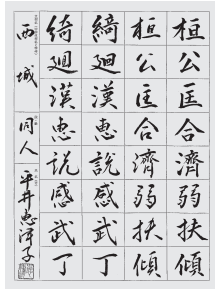 桓公匡合濟弱扶傾
桓公匡合濟弱扶傾
綺迴漢惠說感武丁
綺迴漢惠說感武丁
西城 同人 平井惠子